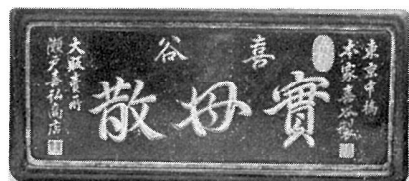 東京中橋
本家喜谷製
喜谷
實母散
大販賣所
瀬戸真弘商店